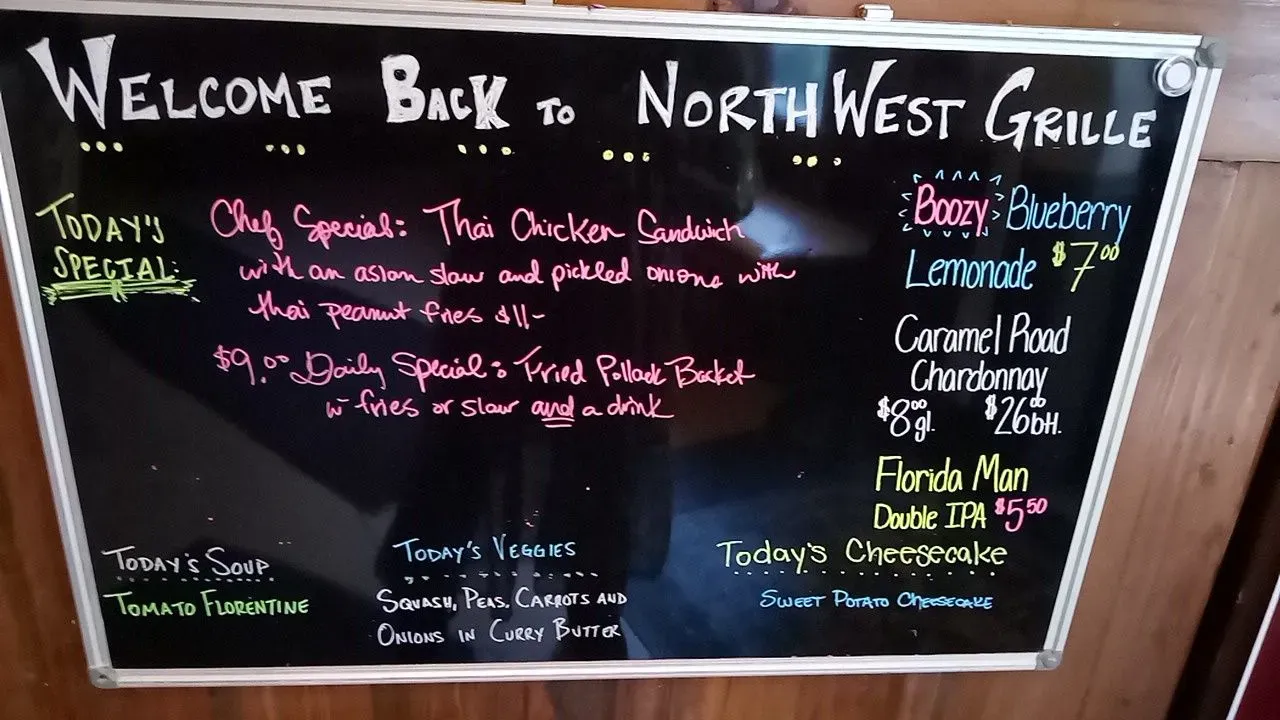 WELCOME BACK TO NORTHWEST GRILLE
TODAY'S
SPECIAL:
Chef Special: Thai Chicken Sandwich
with an asian slaw and pickled onions with
thai peanut fries $11-
$9.00 Daily Special: Fried Pollack Basket
w- fries or slaw and a drink
Boozy Blueberry
Lemonade $7.00
Caramel Road
Chardonnay
$8.00 gl. $26.00 btl.
Florida Man
Double IPA $5.50
TODAY'S SOUP
TOMATO FLORENTINE
TODAY'S VEGGIES
SQUASH, PEAS, CARROTS AND
ONIONS IN CURRY BUTTER
Today's Cheesecake
SWEET POTATO CHEESECAKE